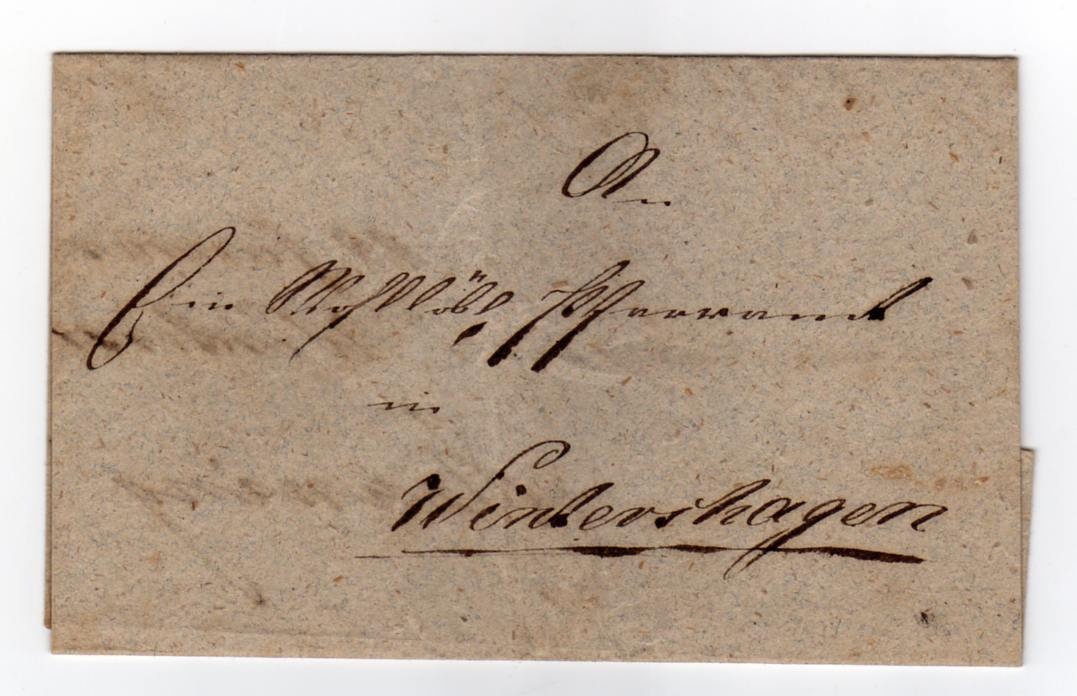 An
Ein Wohllöbl. Pfarramt
in
Wintershagen